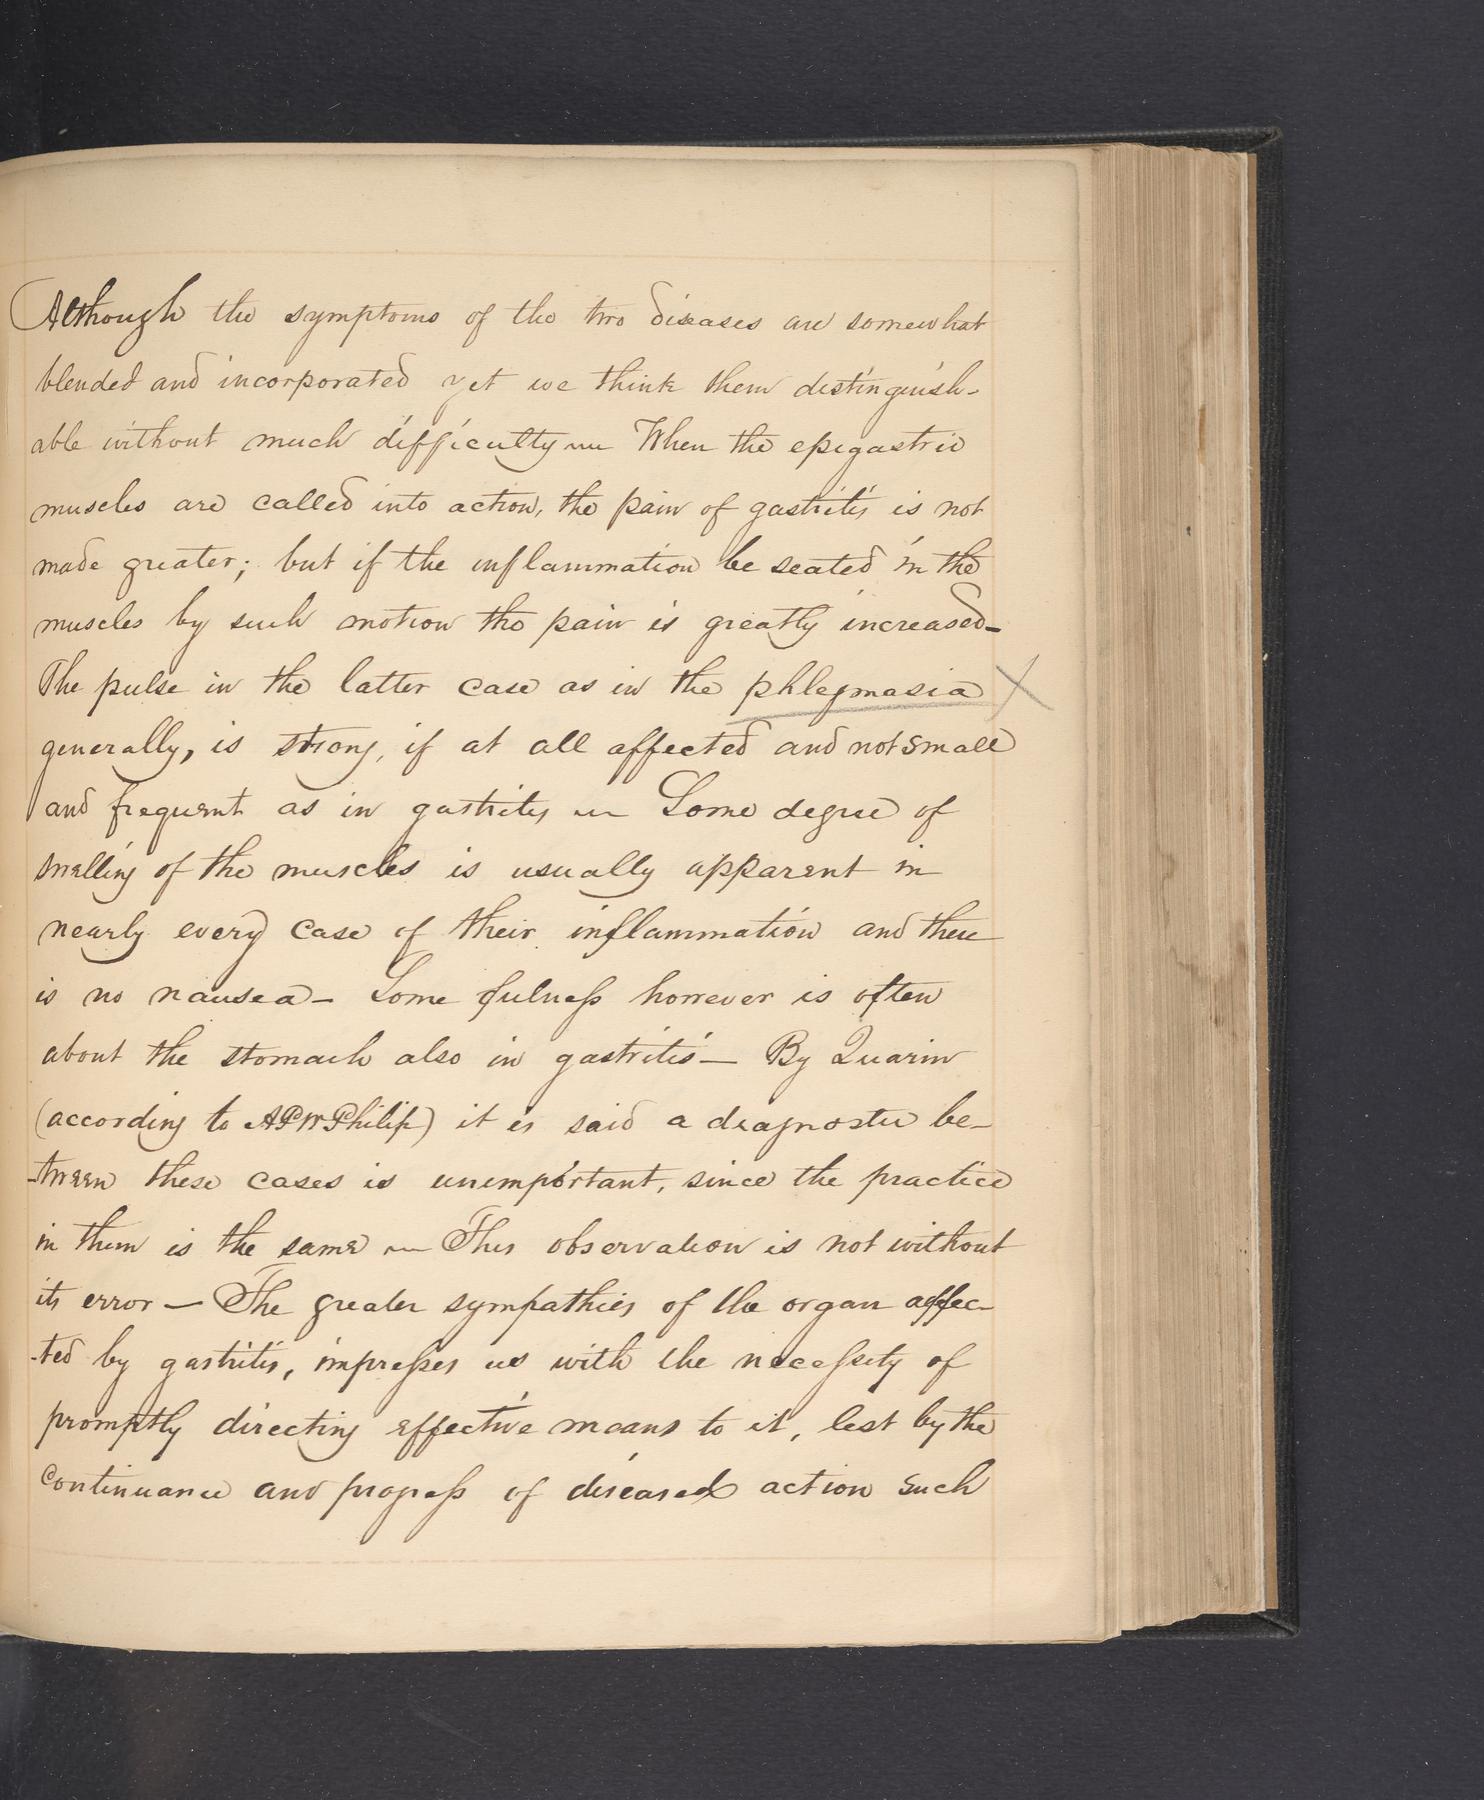 Although the symptoms of the two diseases are somewhat
blended and incorporated yet we think them distinguish-
able without much difficulty — When the epigastric
muscles are called into action, the pain of gastritis is not
made greater; but if the inflammation be seated in the
muscles by such motion the pain is greatly increased-
The pulse in the latter case as in the phlegmasia X
generally, is strong, if at all affected and not small
and frequent as in gastritis — Some degree of
swelling of the muscles is usually apparent in
nearly every case of their inflammation and there
is no nausea - Some fulness however is often
about the stomach also in gastritis — By Quarin
(according to APW Philip) it is said a diagnostic be-
-tween these cases is unimportant, since the practice
in them is the same — This observation is not without
its error — The greater sympathies of the organ affec-
-ted by gastritis, impresses us with the necessity of
promptly directing effective means to it, lest by the
continuance and progress of diseased action such